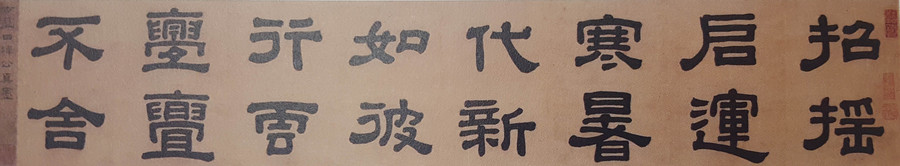 招搖
启運
寒暑
代新
如彼
行雲
亹亹
不舍